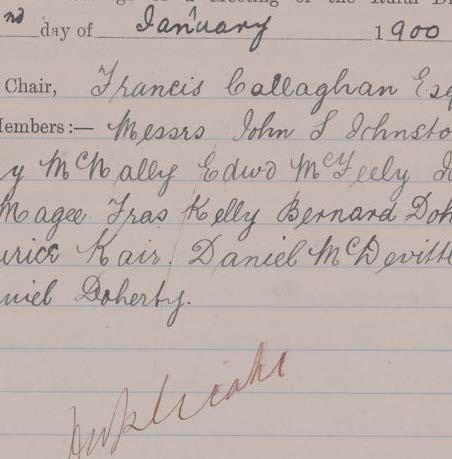 nd day of January 1900
Chair, Francis Callaghan Esq
Members:— Messrs John S Johnsto
y McNally Edwd McFeely
Magee Fras Kelly Bernard Doh
urice Kair. Daniel McDevitte
niel Doherty.
Duplicate